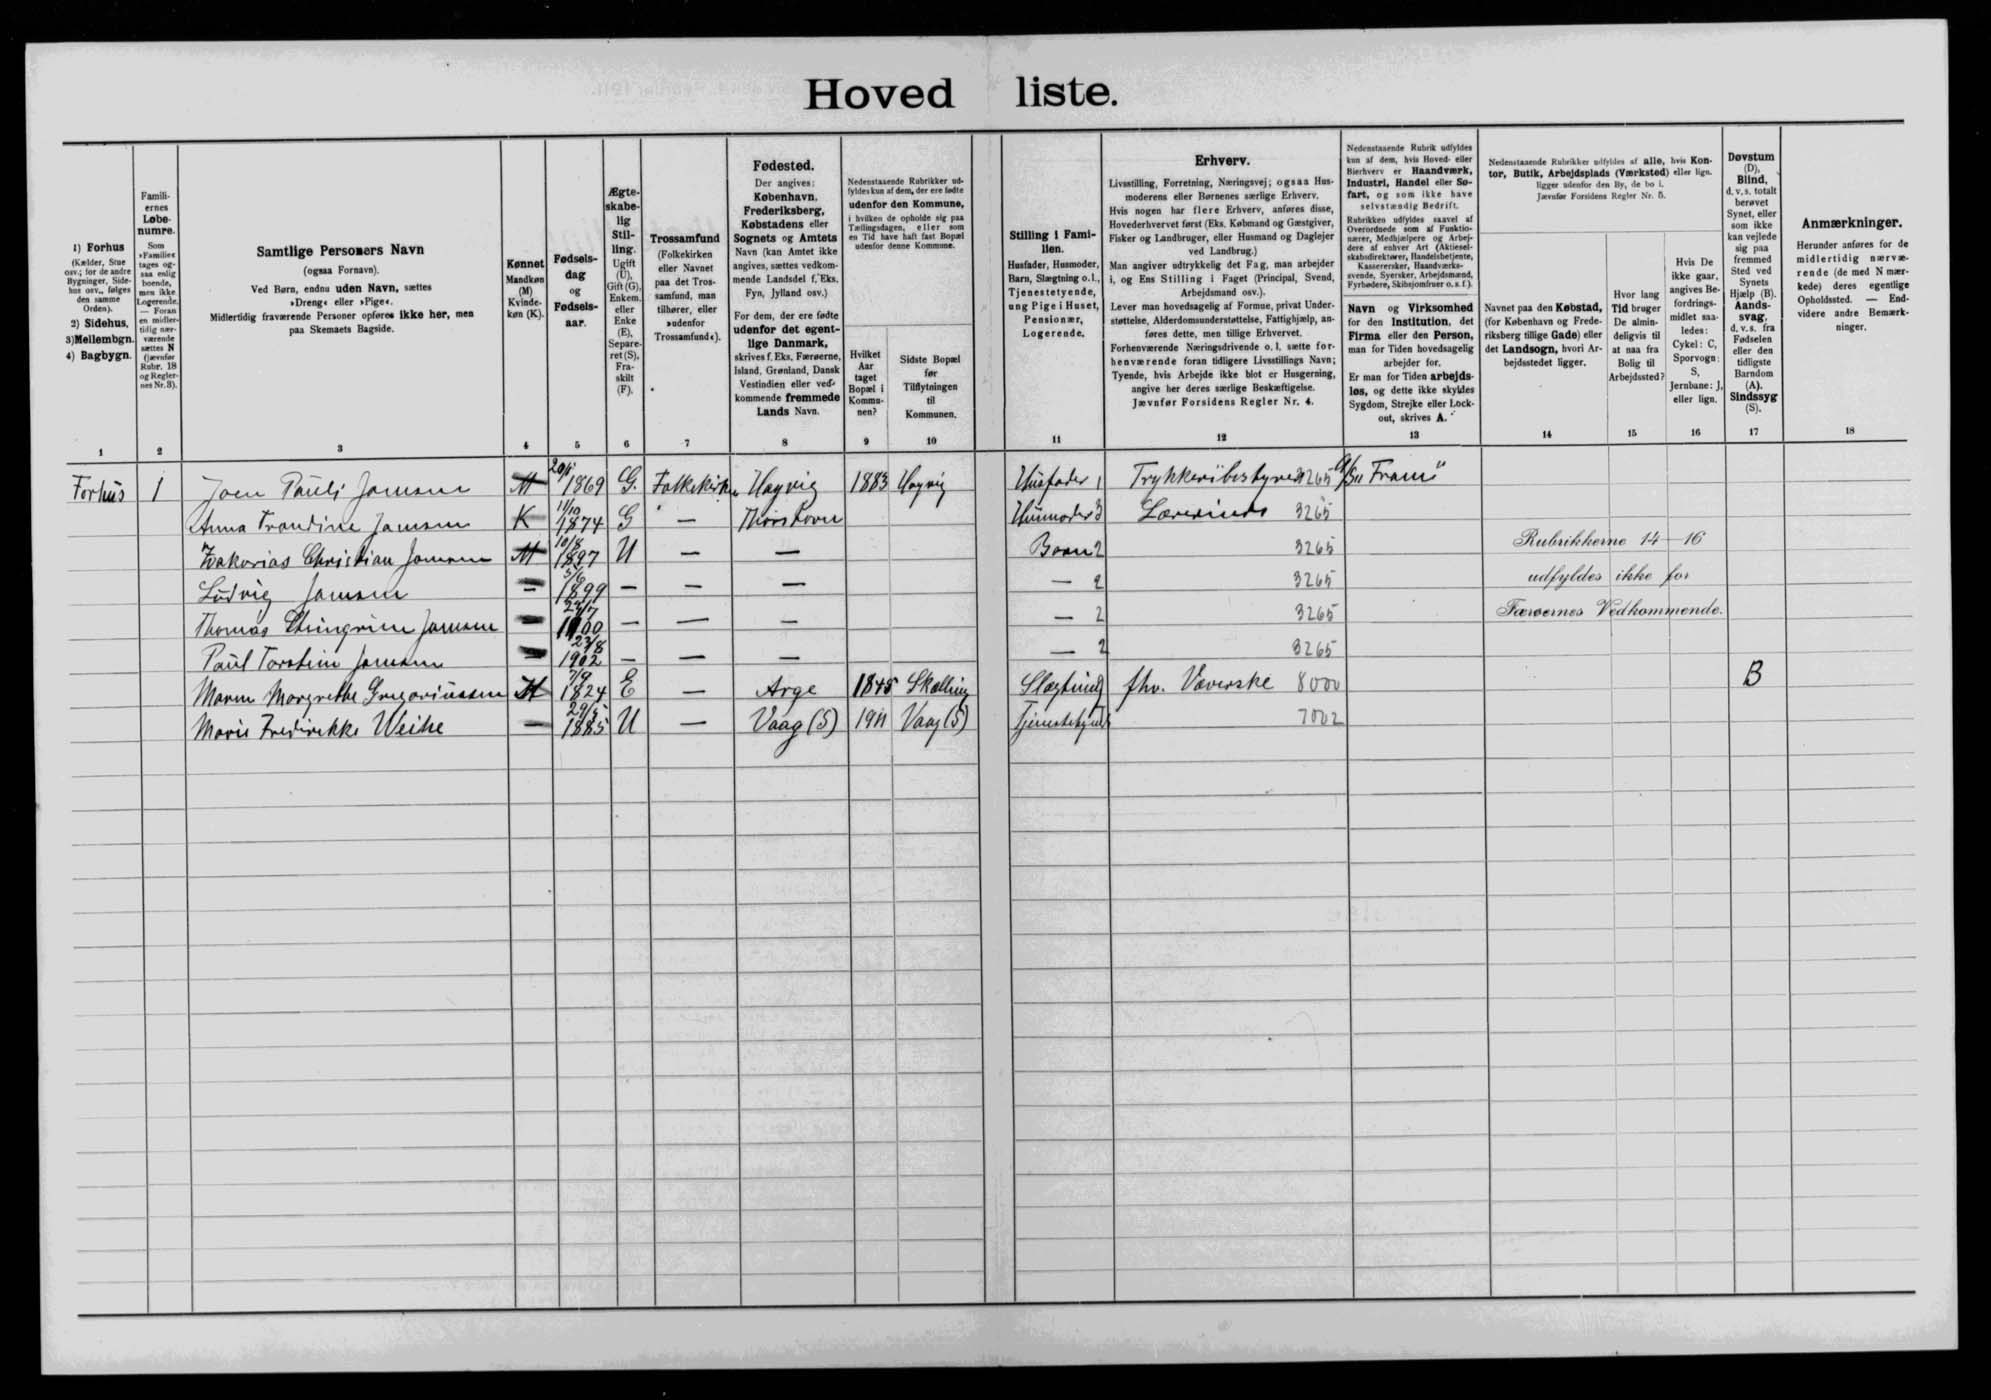 Hoved liste.
1) Forhus
(Kælder, Stue
osv.; for de andre
Bygninger, Side-
hus osv., følges
den samme
Orden).
2) Sidehus,
3) Mellembgn.
4) Bagbygn.
1
Famili-
ernes
Løbe-
numre.
Som
»Familie«
tages og-
saa enlig
boende,
men ikke
Logerende.
— Foran
en midler-
tidig nær-
værende
sættes N
(jævnfør
Rubr. 18
og Regler-
nes Nr. 3).
2
Samtlige Personers Navn
(ogsaa Fornavn).
Ved Børn, endnu uden Navn, sættes
»Dreng« eller »Pige«.
Midlertidig fraværende Personer opføres ikke her, men
paa Skemaets Bagside.
3
Kønnet
Mandkøn
(M)
Kvinde-
køn (K).
4
Fødsels-
dag
og
Fødsels-
aar.
5
Ægte-
skabe-
lig
Stil-
ling.
Ugift
(U),
Gift (G),
Enkem.
eller
Enke
(E),
Separe-
ret (S),
Fra-
skilt
(F).
6
Trossamfund
(Folkekirken
eller Navnet
paa det Tros-
samfund, man
tilhører, eller
»udenfor
Trossamfund«).
7
Fødested.
Der angives:
København,
Frederiksberg,
Købstadens eller
Sognets og Amtets
Navn (kan Amtet ikke
angives, sættes vedkom-
mende Landsdel f. Eks.
Fyn, Jylland osv.)
For dem, der ere fødte
udenfor det egent-
lige Danmark,
skrives f. Eks. Færøerne,
Island, Grønland, Dansk
Vestindien eller ved-
kommende fremmede
Lands Navn.
8
Nedenstaaende Rubrikker ud-
fyldes kun af dem, der ere fødte
udenfor den Kommune,
i hvilken de opholde sig paa
Tællingsdagen, eller som
en Tid have haft fast Bopæl
udenfor denne Kommune.
Hvilket
Aar
taget
Bopæl i
Kommu-
nen?
9
Sidste Bopæl
før
Tilflytningen
til
Kommunen.
10
Stilling i Fami-
lien.
Husfader, Husmoder,
Barn, Slægtning o.l.,
Tjenestetyende,
ung Pige i Huset,
Pensionær,
Logerende.
11
Erhverv.
Livsstilling, Forretning, Næringsvej; ogsaa Hus-
moderens eller Børnenes særlige Erhverv.
Hvis nogen har flere Erhverv, anføres disse,
Hovederhvervet først (Eks. Købmand og Gæstgiver,
Fisker og Landbruger, eller Husmand og Daglejer
ved Landbrug.)
Man angiver udtrykkelig det Fag, man arbejder
i, og Ens Stilling i Faget (Principal, Svend,
Arbejdsmand osv.).
Lever man hovedsagelig af Formue, privat Under-
støttelse, Alderdomsunderstøttelse, Fattighjælp, an-
føres dette, men tillige Erhvervet.
Forhenværende Næringsdrivende o. l. sætte for-
henværende foran tidligere Livsstillings Navn;
Tyende, hvis Arbejde ikke blot er Husgerning,
angive her deres særlige Beskæftigelse.
Jævnfør Forsidens Regler Nr. 4.
12
Nedenstaaende Rubrik udfyldes
kun af dem, hvis Hoved- eller
Bierhverv er Haandværk,
Industri, Handel eller Sø-
fart, og som ikke have
selvstændig Bedrift.
Rubrikken udfyldes saavel af
Overordnede som af Funktio-
nærer, Medhjælpere og Arbej-
dere af enhver Art (Aktiesel-
skabsdirektører, Handelsbetjente,
Kassererskor, Haandværks-
svende, Syersker, Arbejdsmænd,
Fyrbødere, Skibsjomfruer o. s. f.).
Navn og Virksomhed
for den Institution, det
Firma eller den Person,
man for Tiden hovedsagelig
arbejder for.
Er man for Tiden arbejds-
løs, og dette ikke skyldes
Sygdom, Strejke eller Lock-
out, skrives A.
13
Nedenstaaende Rubrikker udfyldes af alle, hvis Kon-
tor, Butik, Arbejdsplads (Værksted) eller lign.
ligger udenfor den By, de bo i.
Jævnfør Forsidens Regler Nr. 5.
Navnet paa den Købstad,
(for København og Frede-
riksberg tillige Gade) eller
det Landsogn, hvori Ar-
bejdsstedet ligger.
14
Hvor lang
Tid bruger
De almin-
deligvis til
at naa fra
Bolig til
Arbejdssted?
15
Hvis De
ikke gaar,
angives Be-
fordrings-
midlet saa-
ledes:
Cykel: C,
Sporvogn:
S,
Jernbane: J,
eller lign.
16
Døvstum
(D),
Blind,
d. v. s. totalt
berøvet
Synet, eller
som ikke
kan vejlede
sig paa
fremmed
Sted ved
Synets
Hjælp (B).
Aands-
svag,
d. v. s. fra
Fødselen
eller den
tidligste
Barndom
(A).
Sindssyg
(S).
17
Anmærkninger.
Herunder anføres for de
midlertidig nærvæ-
rende (de med N mær-
kede) deres egentlige
Opholdssted. — End-
videre andre Bemærk-
ninger.
18
Forhus 1 Joen Pauli Jansen M 20/1 1869 G. Folkekirken Høyvig 1883 Høyvig Husfader 1 Trykkeribestyrer 3265 A/S „Fram"
Anna Frandine Jansen K 11/10 1874 G — Thorshavn Husmoder 3 Lærerinde 3265
Zakarias Christian Jansen M 10/8 1897 U — — Barn 2 3265 Rubrikkerne 14—16
Ludvig Jansen — 5/6 1899 — — — — 2 3265 udfyldes ikke for
Thomas Jansen — 1900 — — — — 2 3265 Færøernes Vedkommende.
Paul Torstein Jansen — 23/8 1902 — — — — 2 3265
Maren Margrethe Gregoriussen K 7/9 1824 E — Arge 1845 Skælling Slægtning fhv. Væverske 8000 B
Marie Frederikke Weihe — 29/5 1885 U — Vaag (S) 1911 Vaag (S) Tjenestetyende 7002